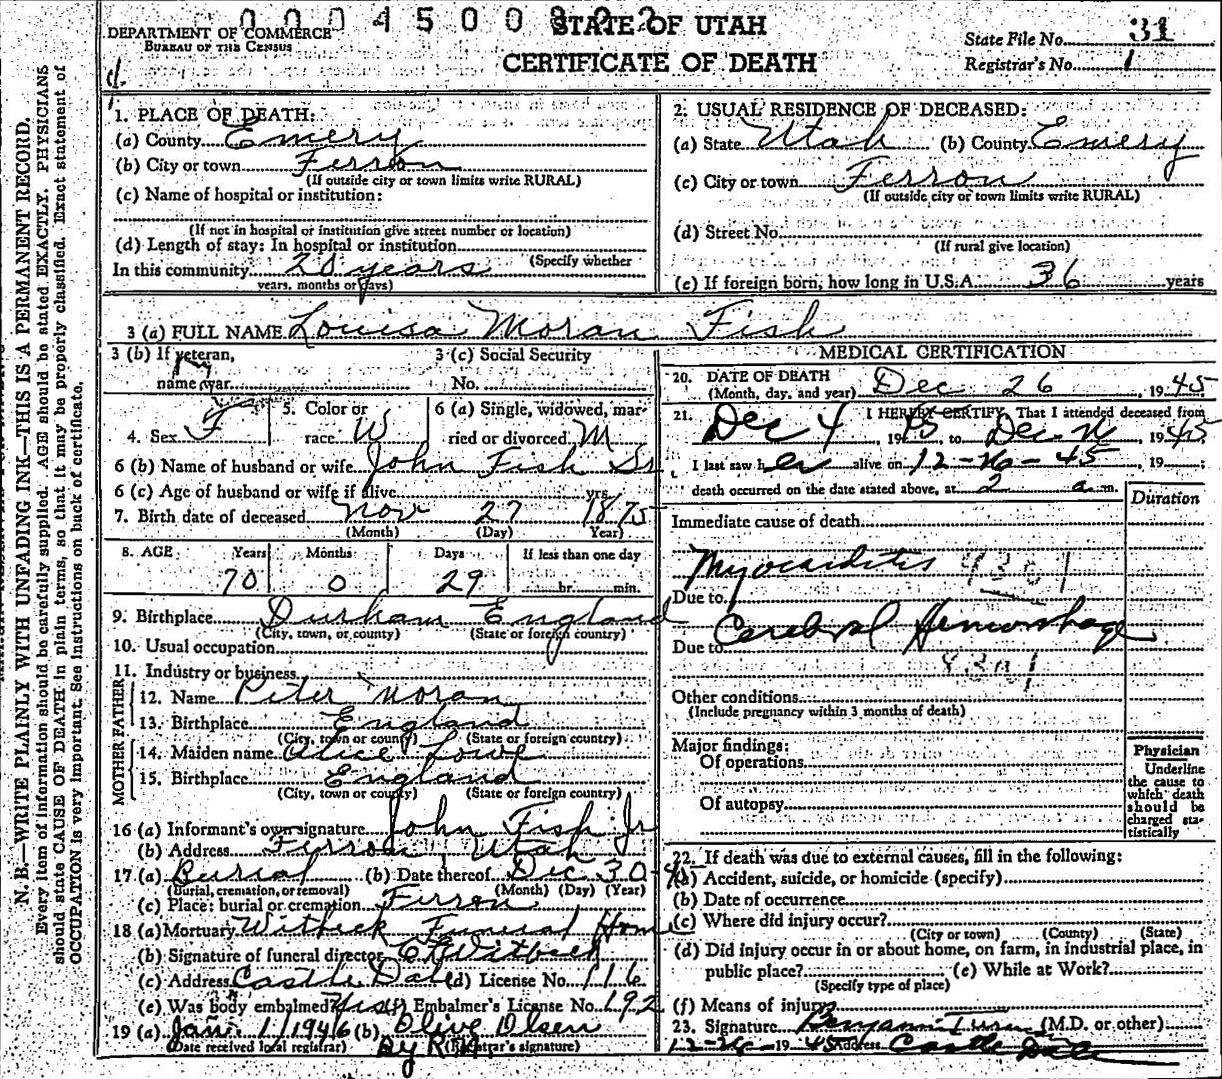 000450082
STATE OF UTAH
CERTIFICATE OF DEATH
DEPARTMENT OF COMMERCE
BUREAU OF THE CENSUS
State File No. 31
Registrar's No. 1
N. B.—WRITE PLAINLY WITH UNFADING INK—THIS IS A PERMANENT RECORD.
Every item of information should be carefully supplied. AGE should be stated EXACTLY. PHYSICIANS
should state CAUSE OF DEATH in plain terms, so that it may be properly classified. Exact statement of
OCCUPATION is very important. See instructions on back of certificate.
1. PLACE OF DEATH:
(a) County Emery
(b) City or town Ferron
(If outside city or town limits write RURAL)
(c) Name of hospital or institution:
(If not in hospital or institution give street number or location)
(d) Length of stay: In hospital or institution
(Specify whether
In this community 20 years
years, months or days)
2. USUAL RESIDENCE OF DECEASED:
(a) State Utah (b) County Emery
(c) City or town Ferron
(If outside city or town limits write RURAL)
(d) Street No.
(If rural give location)
(e) If foreign born, how long in U.S.A. 36 years
3 (a) FULL NAME Louisa Moran Fish
3 (b) If veteran,
name war
3 (c) Social Security
No.
4. Sex F
5. Color or
race W
6 (a) Single, widowed, mar-
ried or divorced M
6 (b) Name of husband or wife John Fish Sr
6 (c) Age of husband or wife if alive yrs.
7. Birth date of deceased Nov 27 1875
(Month) (Day) Year)
8. AGE Years Months Days If less than one day
70 0 29 hr. min.
9. Birthplace Durham England
(City, town, or county) (State or foreign country)
10. Usual occupation
11. Industry or business
FATHER
12. Name Peter Moran
13. Birthplace England
(City, town or county) (State or foreign country)
MOTHER
14. Maiden name Alice Lowe
15. Birthplace England
(City, town or county) (State or foreign country)
16 (a) Informant's own signature John Fish Jr
(b) Address Ferron, Utah
17 (a) Burial (b) Date thereof Dec 30-45
(Burial, cremation, or removal) (Month) (Day) (Year)
(c) Place: burial or cremation Ferron
18 (a) Mortuary Witbeck Funeral Home
(b) Signature of funeral director Witbeck
(c) Address Castle Dale (d) License No. 116
(e) Was body embalmed? Yes (f) Embalmer's License No. 192
19 (a) Jan. 1, 1946 (b) Olive Olsen
(Date received local registrar) (Registrar's signature)
By
MEDICAL CERTIFICATION
20. DATE OF DEATH
(Month, day, and year) Dec 26, 1945
21. I HEREBY CERTIFY, That I attended deceased from
Dec 4, 1945, to Dec. 26, 1945
I last saw her alive on 12-26-45, 19 ;
death occurred on the date stated above, at 2 a.m.
Duration
Immediate cause of death
Myocarditis 9301
Due to
Cerebral Hemorrhage
Due to
8301
Other conditions
(Include pregnancy within 3 months of death)
Major findings:
Of operations
Of autopsy
Physician
Underline
the cause to
which death
should be
charged sta-
tistically
22. If death was due to external causes, fill in the following:
(a) Accident, suicide, or homicide (specify)
(b) Date of occurrence
(c) Where did injury occur?
(City or town) (County) (State)
(d) Did injury occur in or about home, on farm, in industrial place, in
public place? (e) While at Work?
(Specify type of place)
(f) Means of injury
23. Signature Benjamin (M.D. or other)
12-26-1945 Address Castle Dale